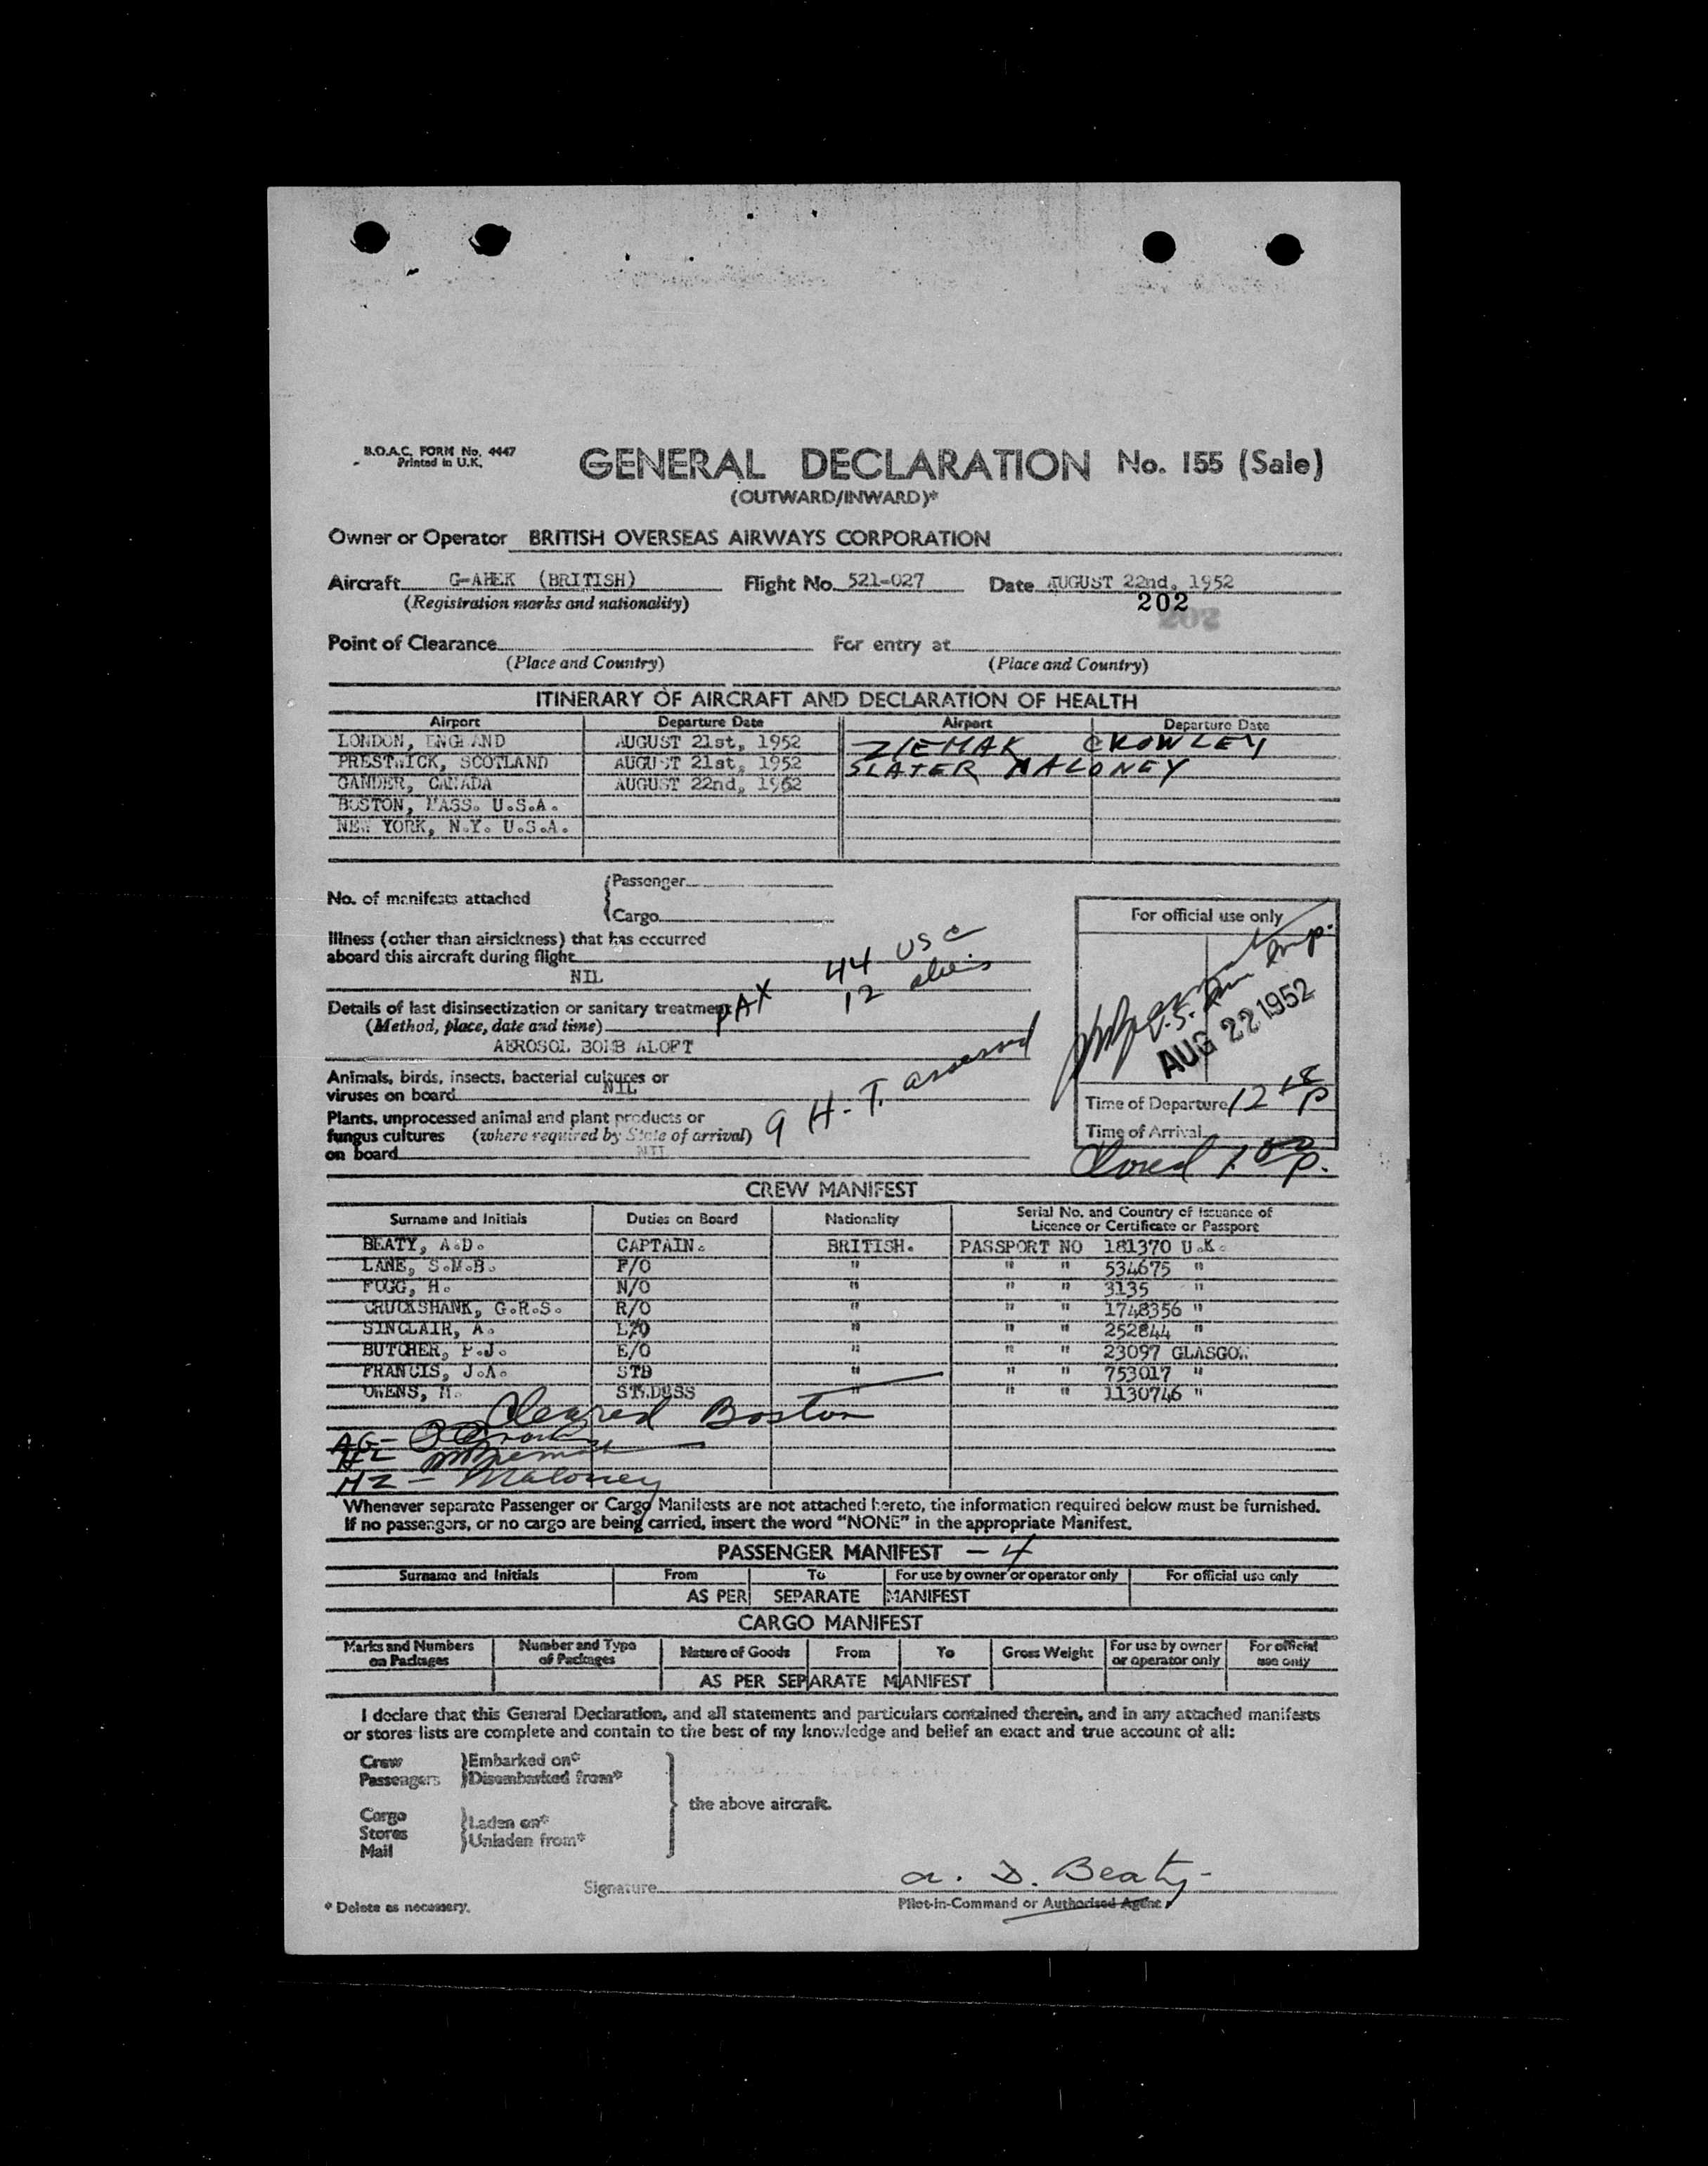 B.O.A.C. FORM No. 4447
Printed in U.K.
GENERAL DECLARATION No. 155 (Sale)
(OUTWARD/INWARD)*
Owner or Operator BRITISH OVERSEAS AIRWAYS CORPORATION
Aircraft G-AHEK (BRITISH) Flight No. 521-027 Date AUGUST 22nd, 1952
(Registration marks and nationality) 202
202
Point of Clearance For entry at
(Place and Country) (Place and Country)
ITINERARY OF AIRCRAFT AND DECLARATION OF HEALTH
Airport Departure Date Airport Departure Date
LONDON, ENGLAND AUGUST 21st, 1952 ZIEMAK CROWLEY
PRESTWICK, SCOTLAND AUGUST 21st, 1952 SLATER MALONEY
GANDER, CANADA AUGUST 22nd, 1952
BOSTON, MASS. U.S.A.
NEW YORK, N.Y. U.S.A.
No. of manifests attached
Passenger
Cargo
For official use only
Illness (other than airsickness) that has occurred
aboard this aircraft during flight
NIL
PAX 44 USC
12 aliens
Details of last disinsectization or sanitary treatment
(Method, place, date and time)
AEROSOL BOMB ALOFT
U.S. Imm Insp.
AUG 22 1952
Animals, birds, insects, bacterial cultures or
viruses on board NIL
Plants, unprocessed animal and plant products or
fungus cultures (where required by State of arrival)
on board NIL
9 H.T. assessed
Time of Departure 12 18 P
Time of Arrival
Closed 1 00 P.
CREW MANIFEST
Surname and Initials Duties on Board Nationality Serial No. and Country of Issuance of
Licence or Certificate or Passport
BEATY, A.D. CAPTAIN. BRITISH. PASSPORT NO 181370 U.K.
LANE, S.M.B. F/O " " " 534675 "
FOGG, H. N/O " " " 3135 "
CRUCKSHANK, G.R.S. R/O " " " 1748356 "
SINCLAIR, A. E/O " " " 252844 "
BUTCHER, P.J. E/O " " " 23097 GLASGOW
FRANCIS, J.A. STD " " " 753017 "
OWENS, M. STWDESS " " " 1130746 "
Cleared Boston
AG-
HZ - Maloney
Whenever separate Passenger or Cargo Manifests are not attached hereto, the information required below must be furnished.
If no passengers, or no cargo are being carried, insert the word "NONE" in the appropriate Manifest.
PASSENGER MANIFEST - 4
Surname and Initials From To For use by owner or operator only For official use only
AS PER SEPARATE MANIFEST
CARGO MANIFEST
Marks and Numbers on Packages Number and Type of Packages Nature of Goods From To Gross Weight For use by owner or operator only For official use only
AS PER SEPARATE MANIFEST
I declare that this General Declaration, and all statements and particulars contained therein, and in any attached manifests
or stores lists are complete and contain to the best of my knowledge and belief an exact and true account of all:
Crew Embarked on*
Passengers Disembarked from*
the above aircraft.
Cargo
Stores
Mail
Laden on*
Unladen from*
Signature A. D. Beaty
* Delete as necessary. Pilot-in-Command or Authorised Agent